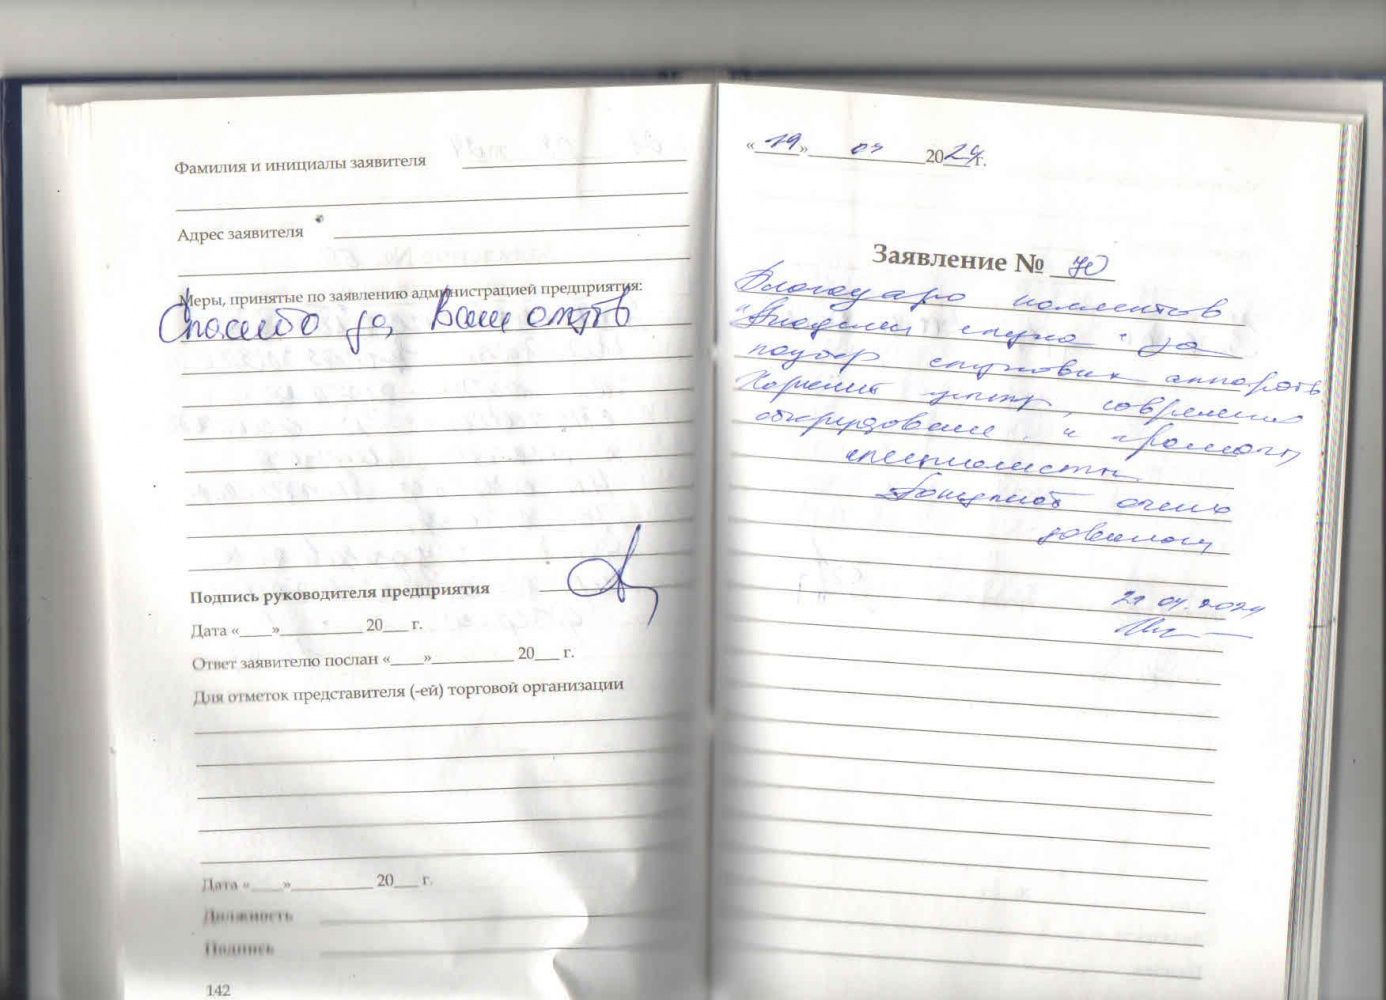 Фамилия и инициалы заявителя
Адрес заявителя
Меры, принятые по заявлению администрацией предприятия:
Спасибо за, Ваш отзыв
Подпись руководителя предприятия
Дата «____»__________ 20___ г.
Ответ заявителю послан «____»__________ 20___ г.
Для отметок представителя (-ей) торговой организации
Дата «____»__________ 20___ г.
Должность
Подпись
142
«19» 04 2024г.
Заявление № 70
Благодарю
"Академия слуха" за
подбор слуховых аппаратов
Хороший центр, современное
оборудование, и грамотные
специалисты.
очень